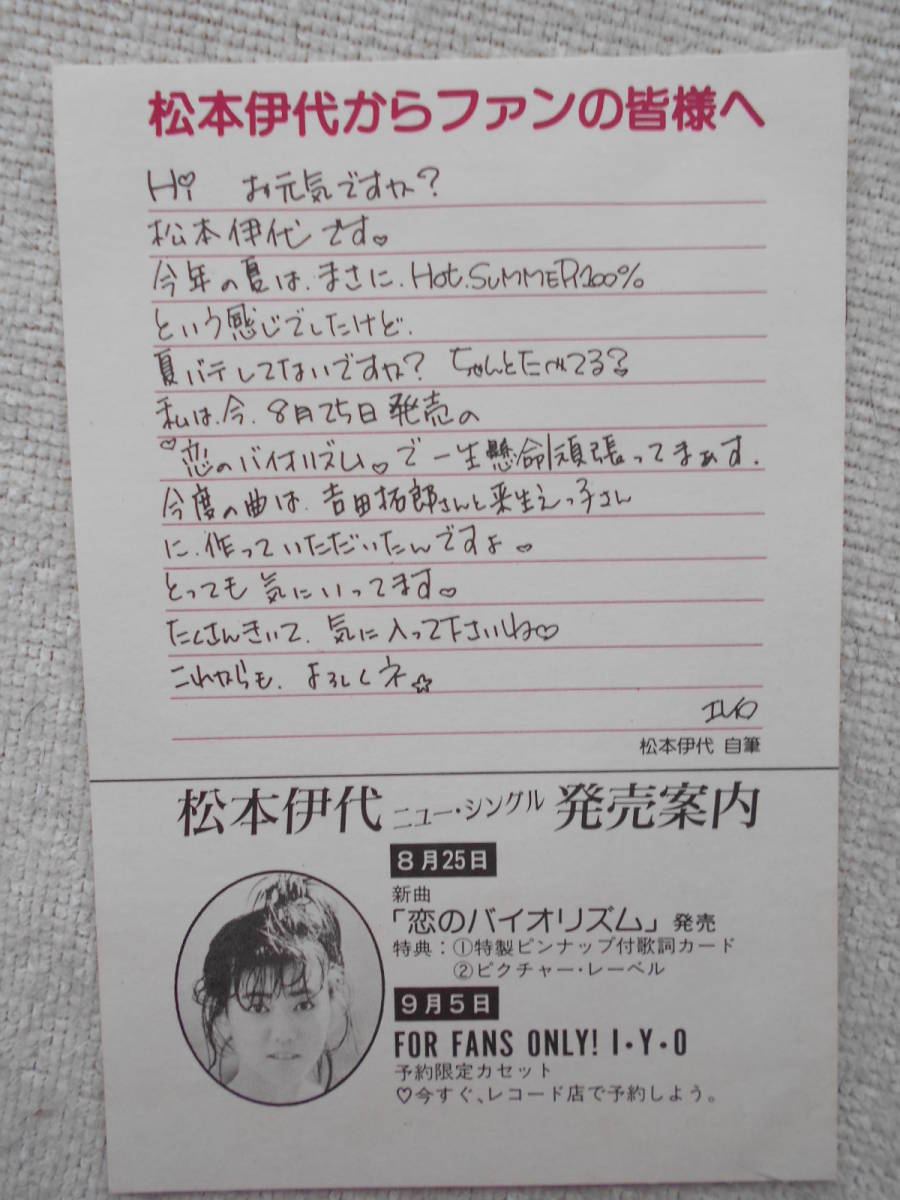 松本伊代からファンの皆様へ
Hi お元気ですか?
松本伊代です♡
今年の夏は、まさに、Hot.SUMMER100%
という感じでしたけど、
夏バテしてないですか? ちゃんとたべてる?
私は、今、8月25日発売の
♡恋のバイオリズム♡で一生懸命頑張ってまぁす。
今度の曲は、吉田拓郎さんと来生えつ子さん
に、作っていただいたんですよ♡
とっても気にいってます♡
たくさんきいて、気に入って下さいね♡
これからも、よろしくネ☆
IYO
松本伊代 自筆
松本伊代 ニュー・シングル 発売案内
8月25日
新曲
「恋のバイオリズム」発売
特典:①特製ピンナップ付歌詞カード
②ピクチャー・レーベル
9月5日
FOR FANS ONLY! I・Y・O
予約限定カセット
♡今すぐ、レコード店で予約しよう。